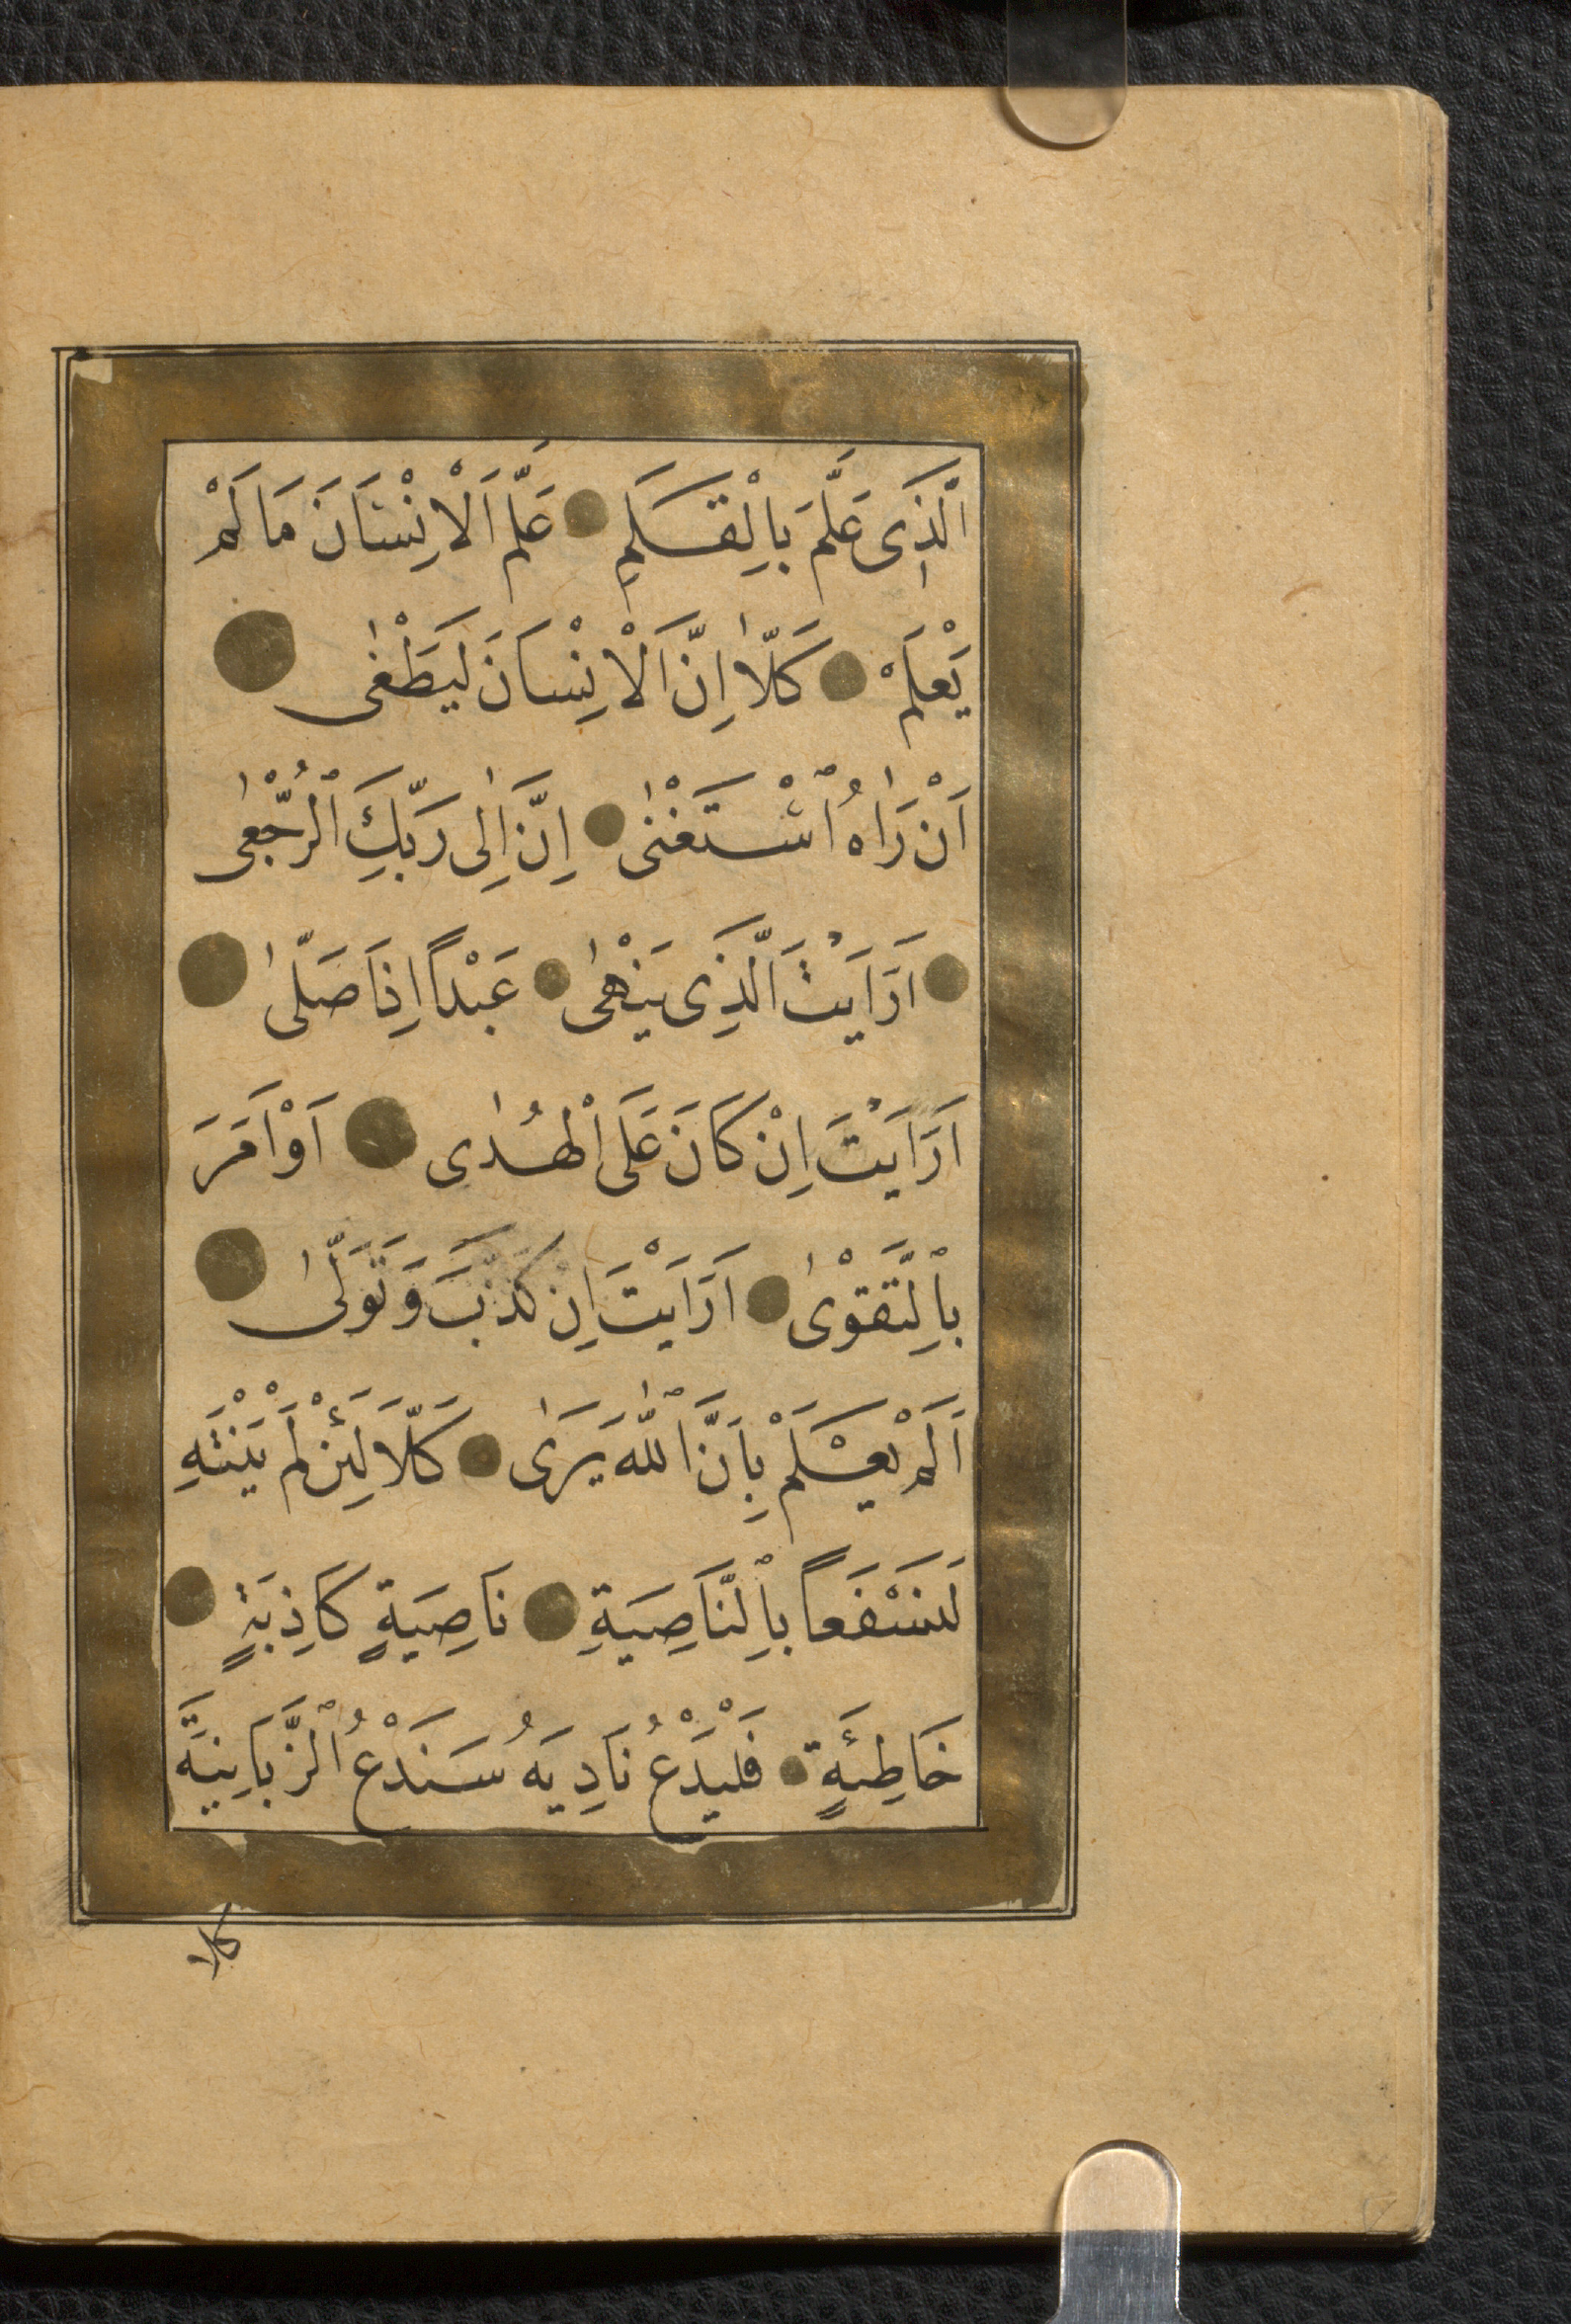 اَلَّذٖى عَلَّمَ بِالْقَلَمِ عَلَّمَ اَلْاِنْسَانَ مَا لَمْ
يَعْلَمْ كَلّٰا اِنَّ اَلْاِنْسَانَ لَيَطْغٰى
اَنْ رَاٰهُ ٱسْتَغْنٰى اِنَّ اِلٰى رَبِّكَ ٱلرُّجْعٰى
اَرَاَيْتَ اَلَّذِى يَنْهٰى عَبْداً اِذَا صَلّٰى
اَرَاَيْتَ اِنْ كَانَ عَلَى اَلْهُدٰى اَوْ اَمَرَ
بِٱلتَّقْوٰى اَرَاَيْتَ اِن كَذَّبَ وَتَوَلّٰى
اَلَمْ يَعْلَمْ بِاَنَّ ٱللّٰهَ يَرٰى كَلَّا لَئِنْ لَمْ يَنْتَهِ
لَنَسْفَعاً بِٱلنَّاصِيَةِ نَاصِيَةٍ كَاذِبَةٍ
خَاطِئَةٍ فَلْيَدْعُ نَادِيَهُ سَنَدْعُ ٱلزَّبَانِيَةَ
كلا